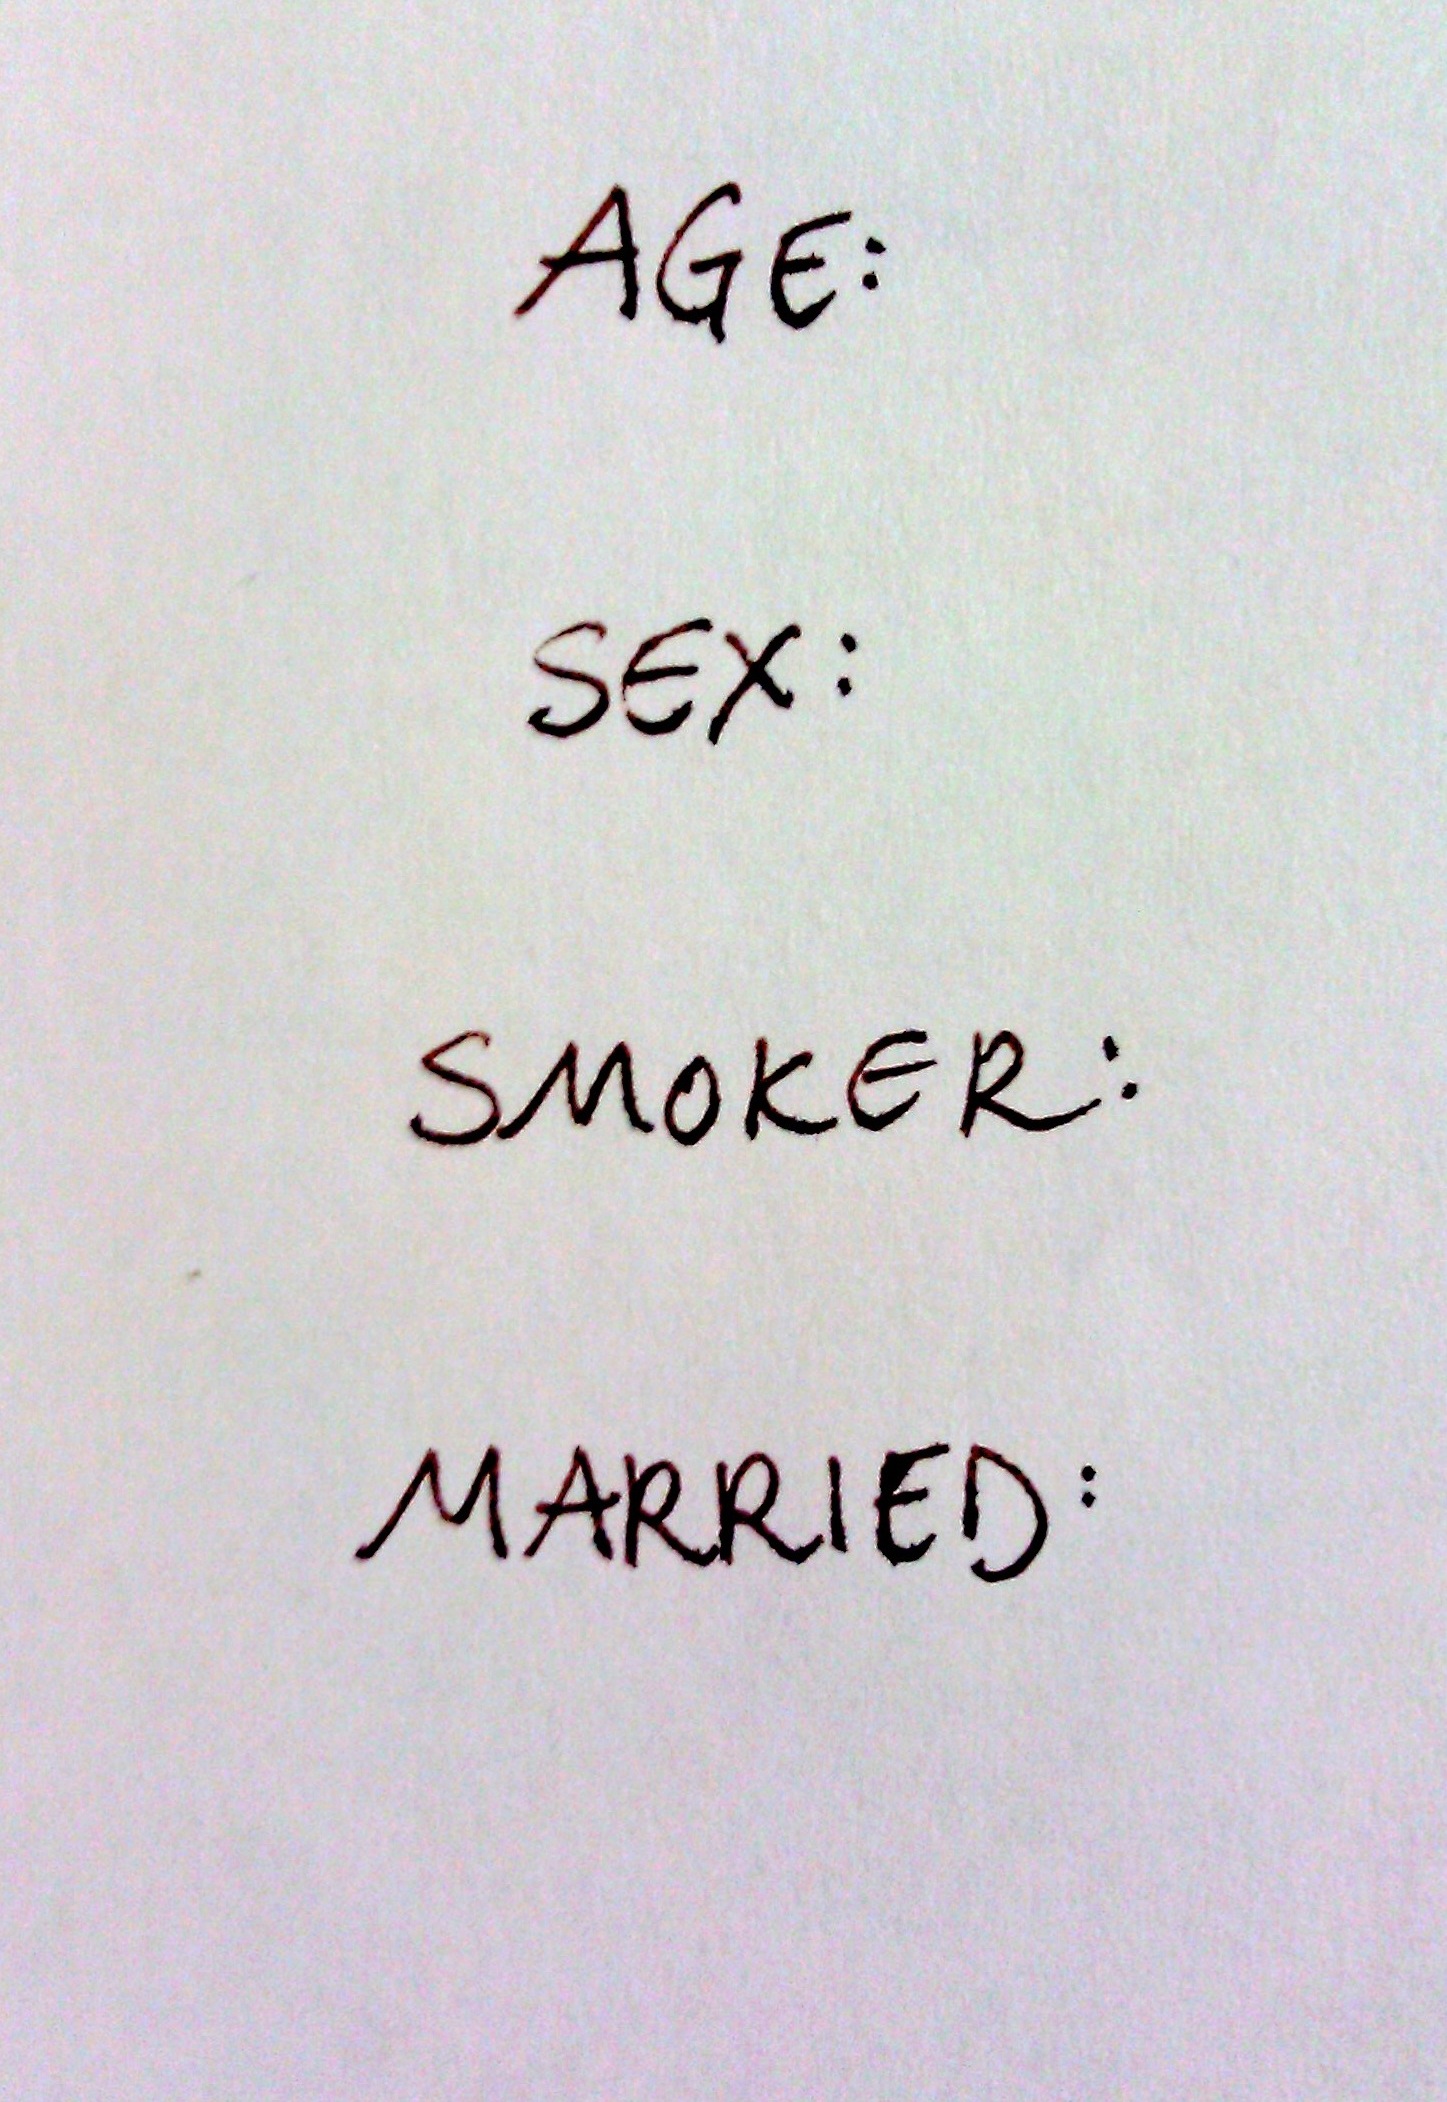 AGE:
SEX:
SMOKER:
MARRIED: